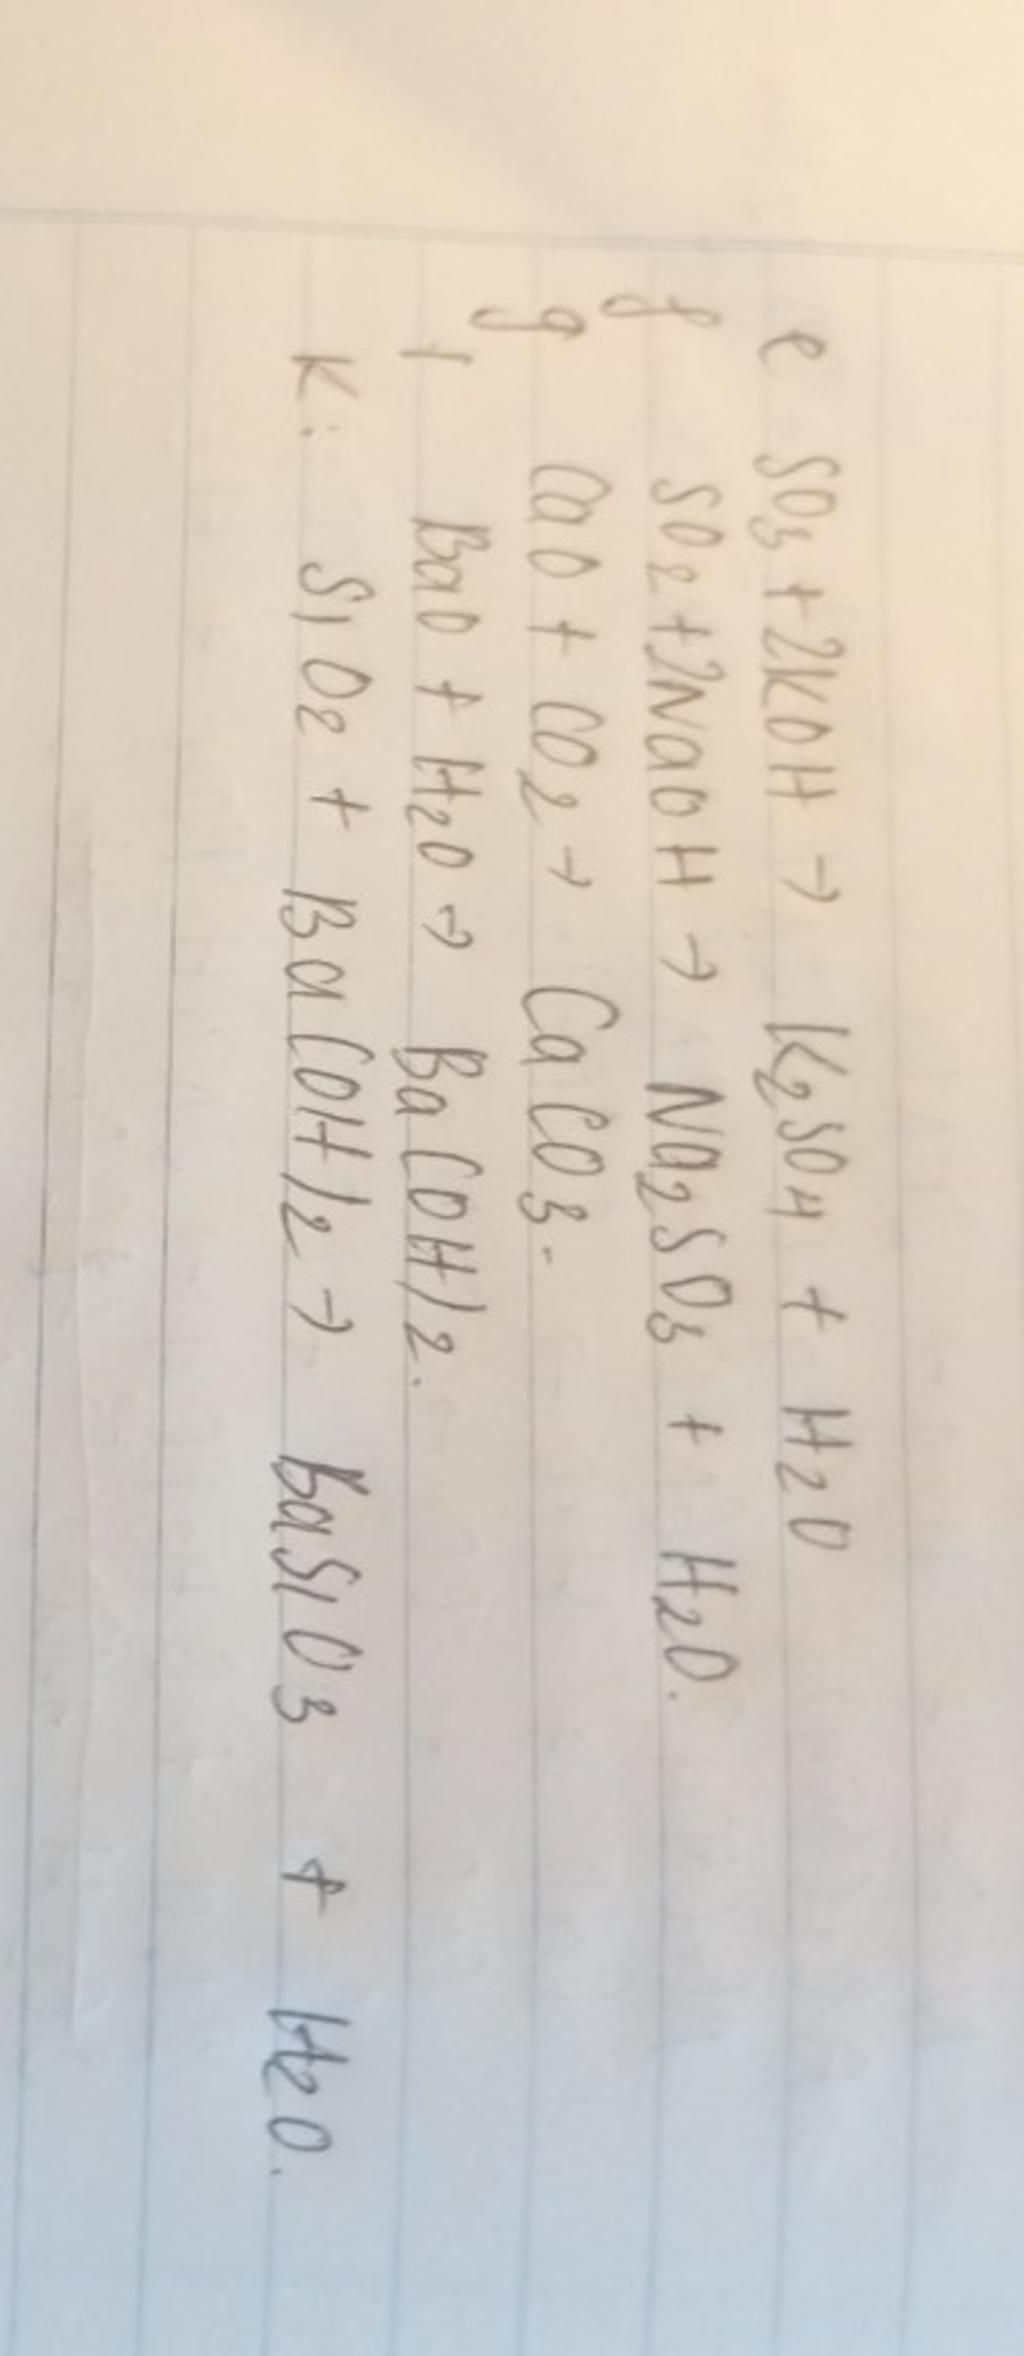 e SO3 + 2KOH → K2SO4 + H2O
f SO2 + 2NaOH → Na2SO3 + H2O.
g CaO + CO2 → CaCO3.
i BaO + H2O → Ba(OH)2.
K: SiO2 + Ba(OH)2 → BaSiO3 + H2O.